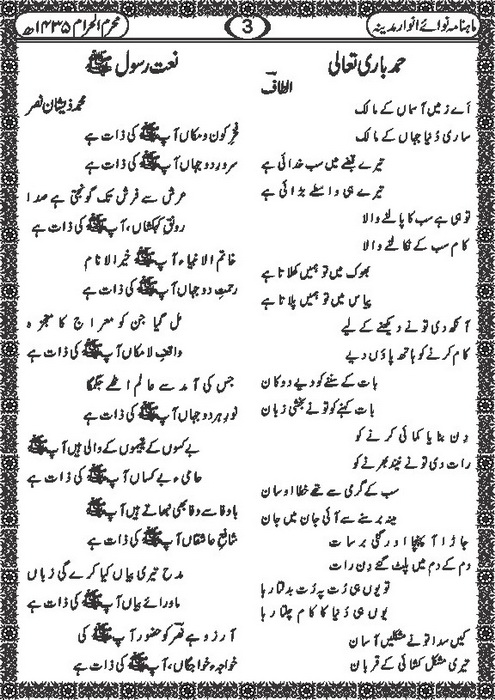 ماہنامہ نوائے انوار مدینہ
3
محرم الحرام ۱۴۳۵ھ
حمد باری تعالی
الطاف
اے زمیں آسماں کے مالک
ساری دُنیا جہاں کے مالک
تیرے قبضے میں سب خدائی ہے
تیرے ہی واسطے بڑائی ہے
تو ہی ہے سب کا پالنے والا
کام سب کے نکالنے والا
بھوک میں تو ہمیں کھلاتا ہے
پیاس میں تو ہمیں پلاتا ہے
آنکھ دی تو نے دیکھنے کے لیے
کام کرنے کو ہاتھ پاؤں دیے
بات کے سننے کو دیے دو کان
بات کہنے کو تو نے بخشی زبان
دِن بنایا کمائی کرنے کو
رات دی تو نے نیند بھرنے کو
سب کے گرمی سے تھے خطا اوسان
مینہ برسنے سے آئی جان میں جان
جاڑا آ پہنچا اور گئی برسات
دم کے دم میں پلٹ گئے دن رات
تو یوں ہی رُت پہ رُت بدلتا رہا
یوں ہی دُنیا کا کام چلتا رہا
کیں سدا تو نے مشکلیں آسان
تیری مشکل کشائی کے قربان
نعت رسول ﷺ
محمد ذیشان نصر
فخرِ کون و مکاں آپ ﷺ کی ذات ہے
سرورِ دو جہاں آپ ﷺ کی ذات ہے
عرش سے فرش تک گونجتی ہے صدا
رونقِ کہکشاں، آپ ﷺ کی ذات ہے
خاتم الانبیاء آپ ﷺ خیر الانام
رحمتِ دو جہاں آپ ﷺ کی ذات ہے
مل گیا جن کو معراج کا معجزہ
واقفِ لامکاں آپ ﷺ کی ذات ہے
جس کی آمد سے عالم اٹھے جگمگا
نورِ ہر دو جہاں آپ ﷺ کی ذات ہے
بے کسوں کے یتیموں کے والی ہیں آپ ﷺ
حامیء بے کساں آپ ﷺ کی ذات ہے
باوفا سے وفا بھی نبھاتے ہیں آپ ﷺ
شافعِ عاشقاں آپ ﷺ کی ذات ہے
مدح تیری بیاں کیا کرے گی زباں
ماورائے بیاں آپ ﷺ کی ذات ہے
آرزو ہے نصر کو حضور آپ ﷺ کی
خواجہء خواجگاں، آپ ﷺ کی ذات ہے